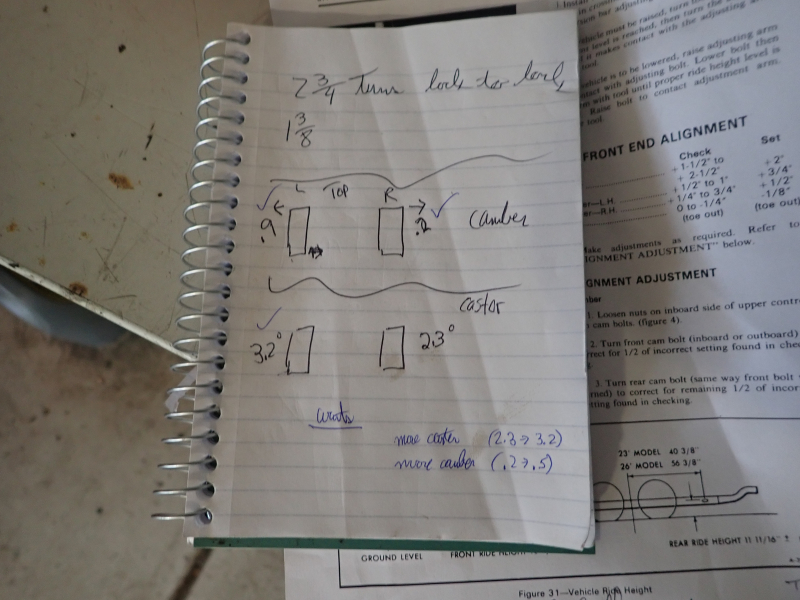 2 3/4 Turns lock to lock
1 3/8
L TOP R
.9 .2 camber
castor
3.2° 2.3°
wants
more caster (2.3 → 3.2)
more camber (.2 → .5)
1. Install
vehicle must be raised, turn
level is reached, then turn the
it makes contact with the adjusting
vehicle is to be lowered, raise adjusting arm
contact with adjusting bolt. Lower bolt then
with tool until proper ride height level is
Raise bolt to contact adjustment arm.
tool.
FRONT END ALIGNMENT
Check Set
+ 1-1/2" to
+ 2-1/2" + 2"
+ 1/2" to 1" + 3/4"
er—L.H. + 1/4" to 3/4" + 1/2"
er—R.H. 0 to -1/4" -1/8"
(toe out) (toe out)
ake adjustments as required. Refer to
IGNMENT ADJUSTMENT" below.
GNMENT ADJUSTMENT
mber
1. Loosen nuts on inboard side of upper contr
cam bolts. (figure 4).
2. Turn front cam bolt (inboard or outboard)
rrect for 1/2 of incorrect setting found in chec
g.
3. Turn rear cam bolt (same way front bolt
rned) to correct for remaining 1/2 of incor
tting found in checking.
23' MODEL 40 3/8"
26' MODEL 56 3/8"
REAR RIDE HEIGHT 11 11/16" ±
GROUND LEVEL FRONT RIDE HEIGHT
Figure 31—Vehicle Ride Height